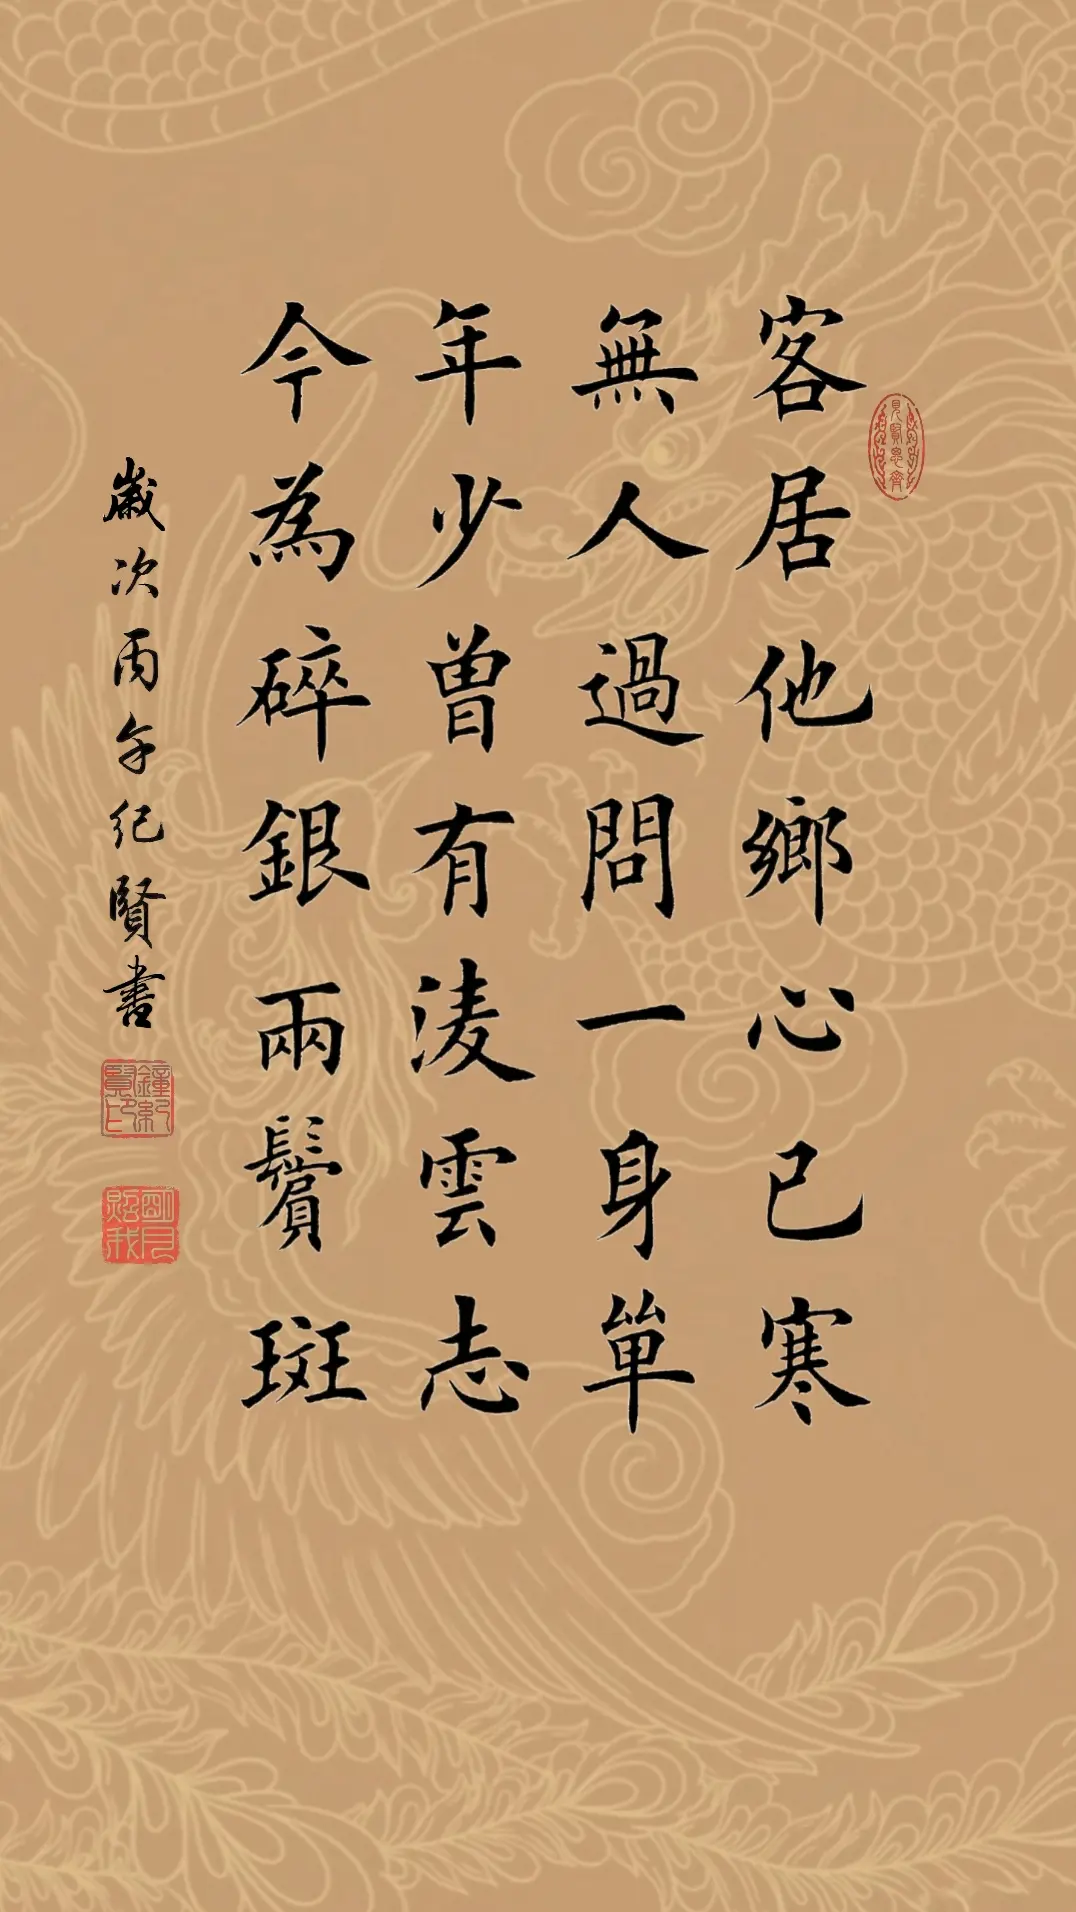 客居他鄉心已寒
無人過問一身單
年少曾有淩雲志
今為碎銀兩鬢斑
歲次丙午纪賢書
見賢思齊
鐘紀賢印